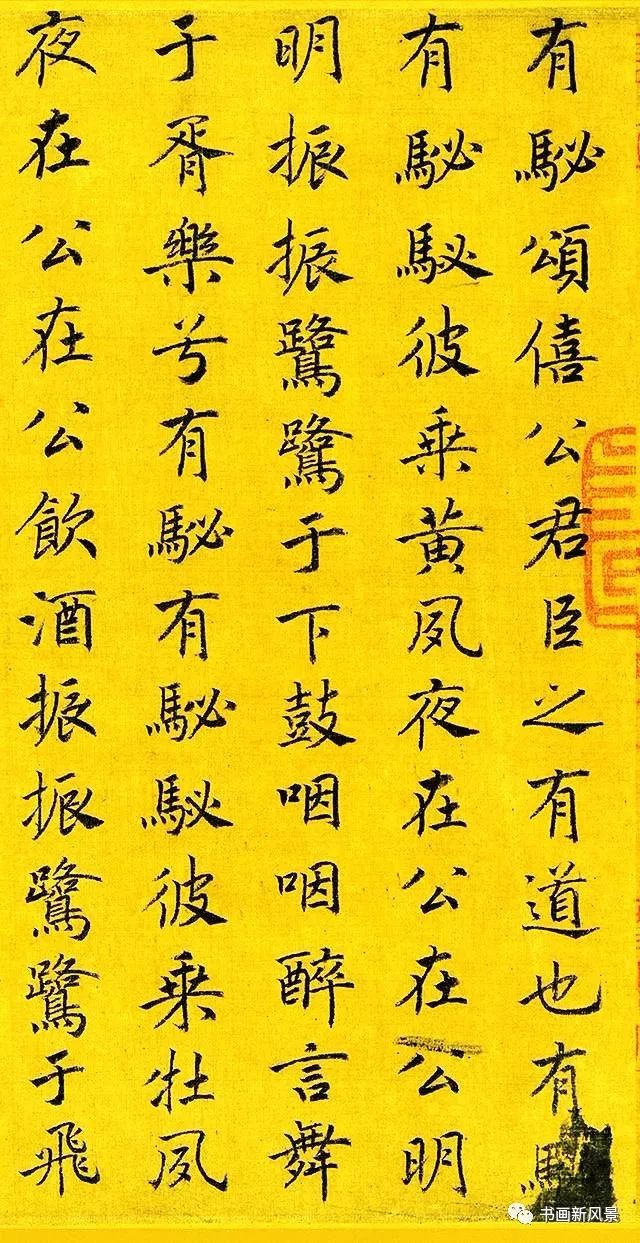 有駜頌僖公君臣之有道也有
有駜駜彼乗黄夙夜在公在公明
明振振鷺鷺于下鼓咽咽醉言舞
于胥樂兮有駜有駜駜彼乗牡夙
夜在公在公飲酒振振鷺鷺于飛
书画新风景